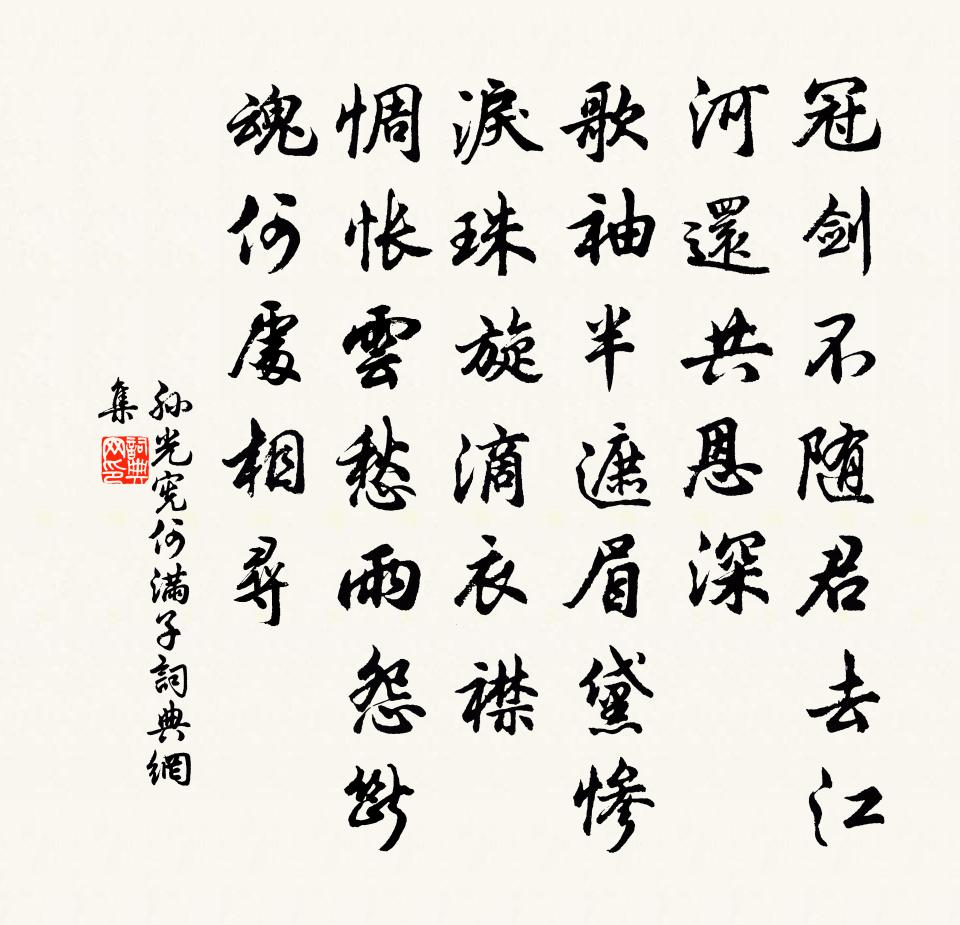 冠剑不随君去江
河還共恩深
歌袖半遮眉黛慘
淚珠旋滴衣襟
惆怅雲愁雨怨斷
魂何處相尋
孙光宪何满子詞典網
集
詞典
网印